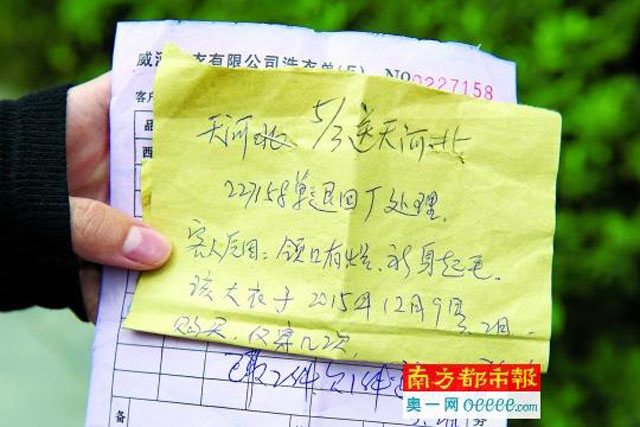 威 衣有限公司洗衣单 No0227158
客
品
西
天河北 5/3送天河北
227158单退回厂处理.
客人反困: 领口有烂、衫身起毛.
该大衣于2015年12月9号、2月、
购买, 仅穿几2次,
已取2件欠1件
备
南方都市報
奥一网oeeee.com